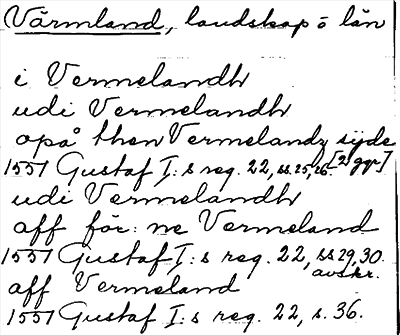 Värmland, landskap o län
i Vermelandh
udi Vermelandh
opå then Vermelandz syde
1551 Gustaf I:s reg. 22, ss. 25, 26. [2 ggr]
udi Vermelandh
aff för: ne Vermeland
1551 Gustaf I:s reg. 22, ss 29, 30.
avskr.
aff Vermeland
1551 Gustaf I:s reg. 22, s. 36.